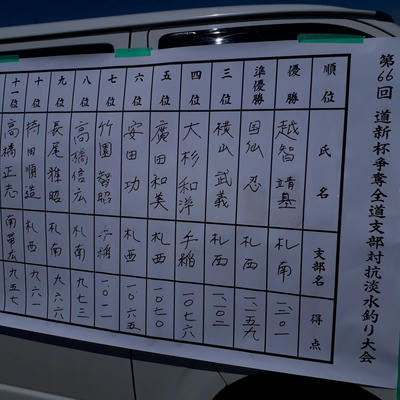 第66回 道新杯争奪全道支部対抗淡水釣り大会
順位 氏名 支部名 得点
優勝 越智靖基 札南 一、三〇一
準優勝 国仙忍 札西 一、二五九
三位 横山武義 札西 一、一〇三
四位 大杉和洋 手稲 一〇七六
五位 廣田和美 札西 一〇七〇
六位 安田功 札西 一〇六五
七位 竹園智昭 手稲 一〇一一
八位 高橋信広 札南 九七三
九位 長尾雅昭 札南 九六六
十位 持田順造 札西 九六一
十一位 高橋正志 南帯広 九五七